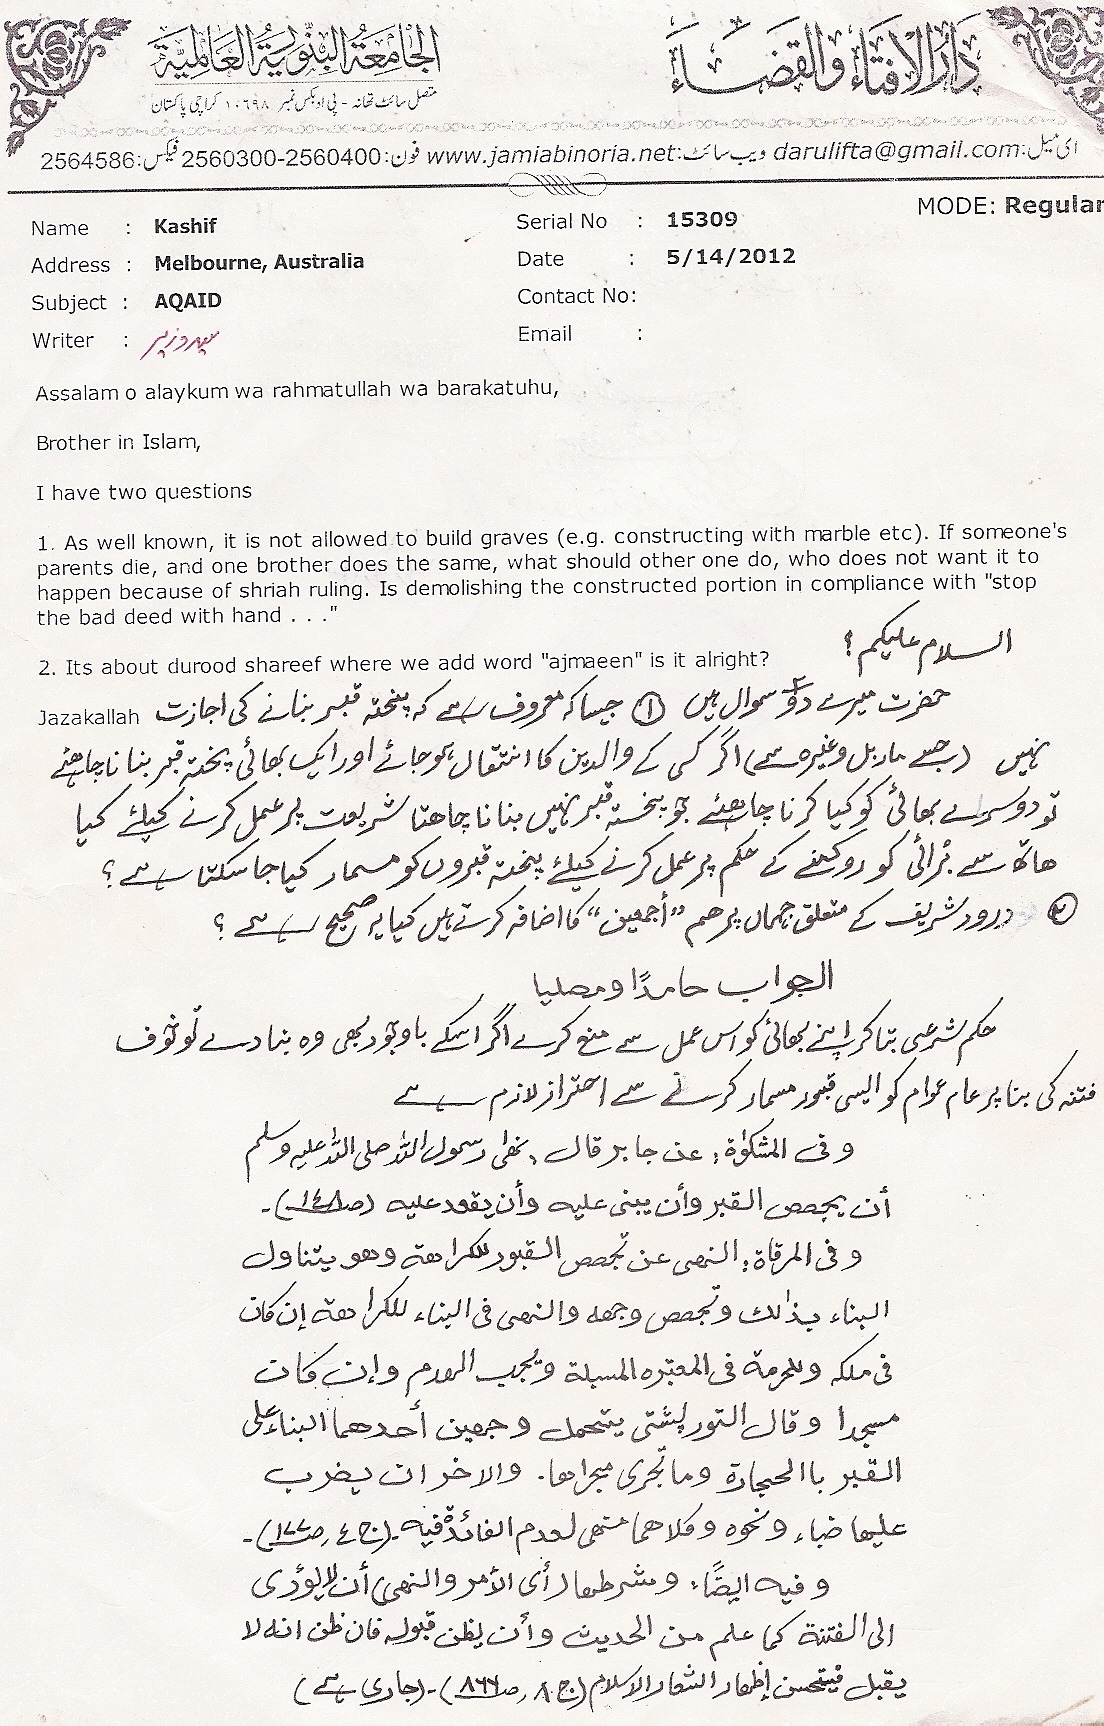 الجامعة البنورية العالمية
دار الافتاء والقضاء
متصل سائٹ تھانہ - پی او بکس نمبر ۱۰۶۹۸ کراچی پاکستان
ای میل: darulifta@gmail.com ویب سائٹ: www.jamiabinoria.net فون: 2560300-2560400 فیکس: 2564586
MODE: Regular
Name : Kashif
Serial No : 15309
Address : Melbourne, Australia
Date : 5/14/2012
Subject : AQAID
Contact No:
Writer :
Email :
Assalam o alaykum wa rahmatullah wa barakatuhu,
Brother in Islam,
I have two questions
1. As well known, it is not allowed to build graves (e.g. constructing with marble etc). If someone's
parents die, and one brother does the same, what should other one do, who does not want it to
happen because of shriah ruling. Is demolishing the constructed portion in compliance with "stop
the bad deed with hand . . ."
السلام علیکم!
2. Its about durood shareef where we add word "ajmaeen" is it alright?
Jazakallah
حضرت میرے دو۲ سوال ہیں ① جیسا کہ معروف ہے کہ پختہ قبر بنانے کی اجازت
نہیں (جیسے ماربل وغیرہ سے) اگر کسی کے والدین کا انتقال ہوجائے اور ایک بھائی پختہ قبر بنانا چاہئے
تو دوسرے بھائی کو کیا کرنا چاہئیے جو پختہ قبر نہیں بنانا چاھتا شریعت پر عمل کرنے کیلئے کیا
ھاتھ سے بُرائی کو روکنے کے حکم پر عمل کرنے کیلئے پختہ قبروں کو مسمار کیا جاسکتا ہے؟
② درود شریف کے متعلق جہاں پر ھم "أجمعین" کا اضافہ کرتے ہیں کیا یہ صحیح ہے؟
الجواب حامدًا ومصلیا
حکم شرعی بتا کر اپنے بھائی کو اس عمل سے منع کرے اگر اسکے باوجود بھی وہ بنادے تو خوف
فتنہ کی بنا پر عام عوام کو ایسی قبور مسمار کرنے سے احتراز لازم ہے
وفی المشکوٰة: عن جابر قال: نھی رسول اللہ صلی اللہ علیہ وسلم
أن یجصص القبر وأن یبنی علیه وأن یقعد علیه (صـ۱٤۸)۔
وفی المرقاة: النھی عن تجصص القبور للکراھة وھو یتناول
البناء بذالك وتجصص وجھه والنھی فی البناء للکراھة إن کان
فی ملکه وللحرمة فی المقبره المسبلة ویجب الھدم وإن کان
مسجدا وقال التورپشتی یتحمل وجھین أحدھما البناء علی
القبر باالحجارة وما تجری مجراھا۔ والاخر ان یضرب
علیھا خباء ونحوه وکلاھما منھی لعدم الفائدة فیه۔ (ج٤، صـ۱۷۷)۔
وفیه ایضًا: وشرطھا (أی الأمر والنھی) أن لایؤدی
الی الفتنة کما علم من الحدیث وأن یظن قبوله فان ظن انه لا
یقبل فیستحسن إظھار الشعار الاسلام (ج۸، صـ۸۶۶)۔ (جاری ہے)